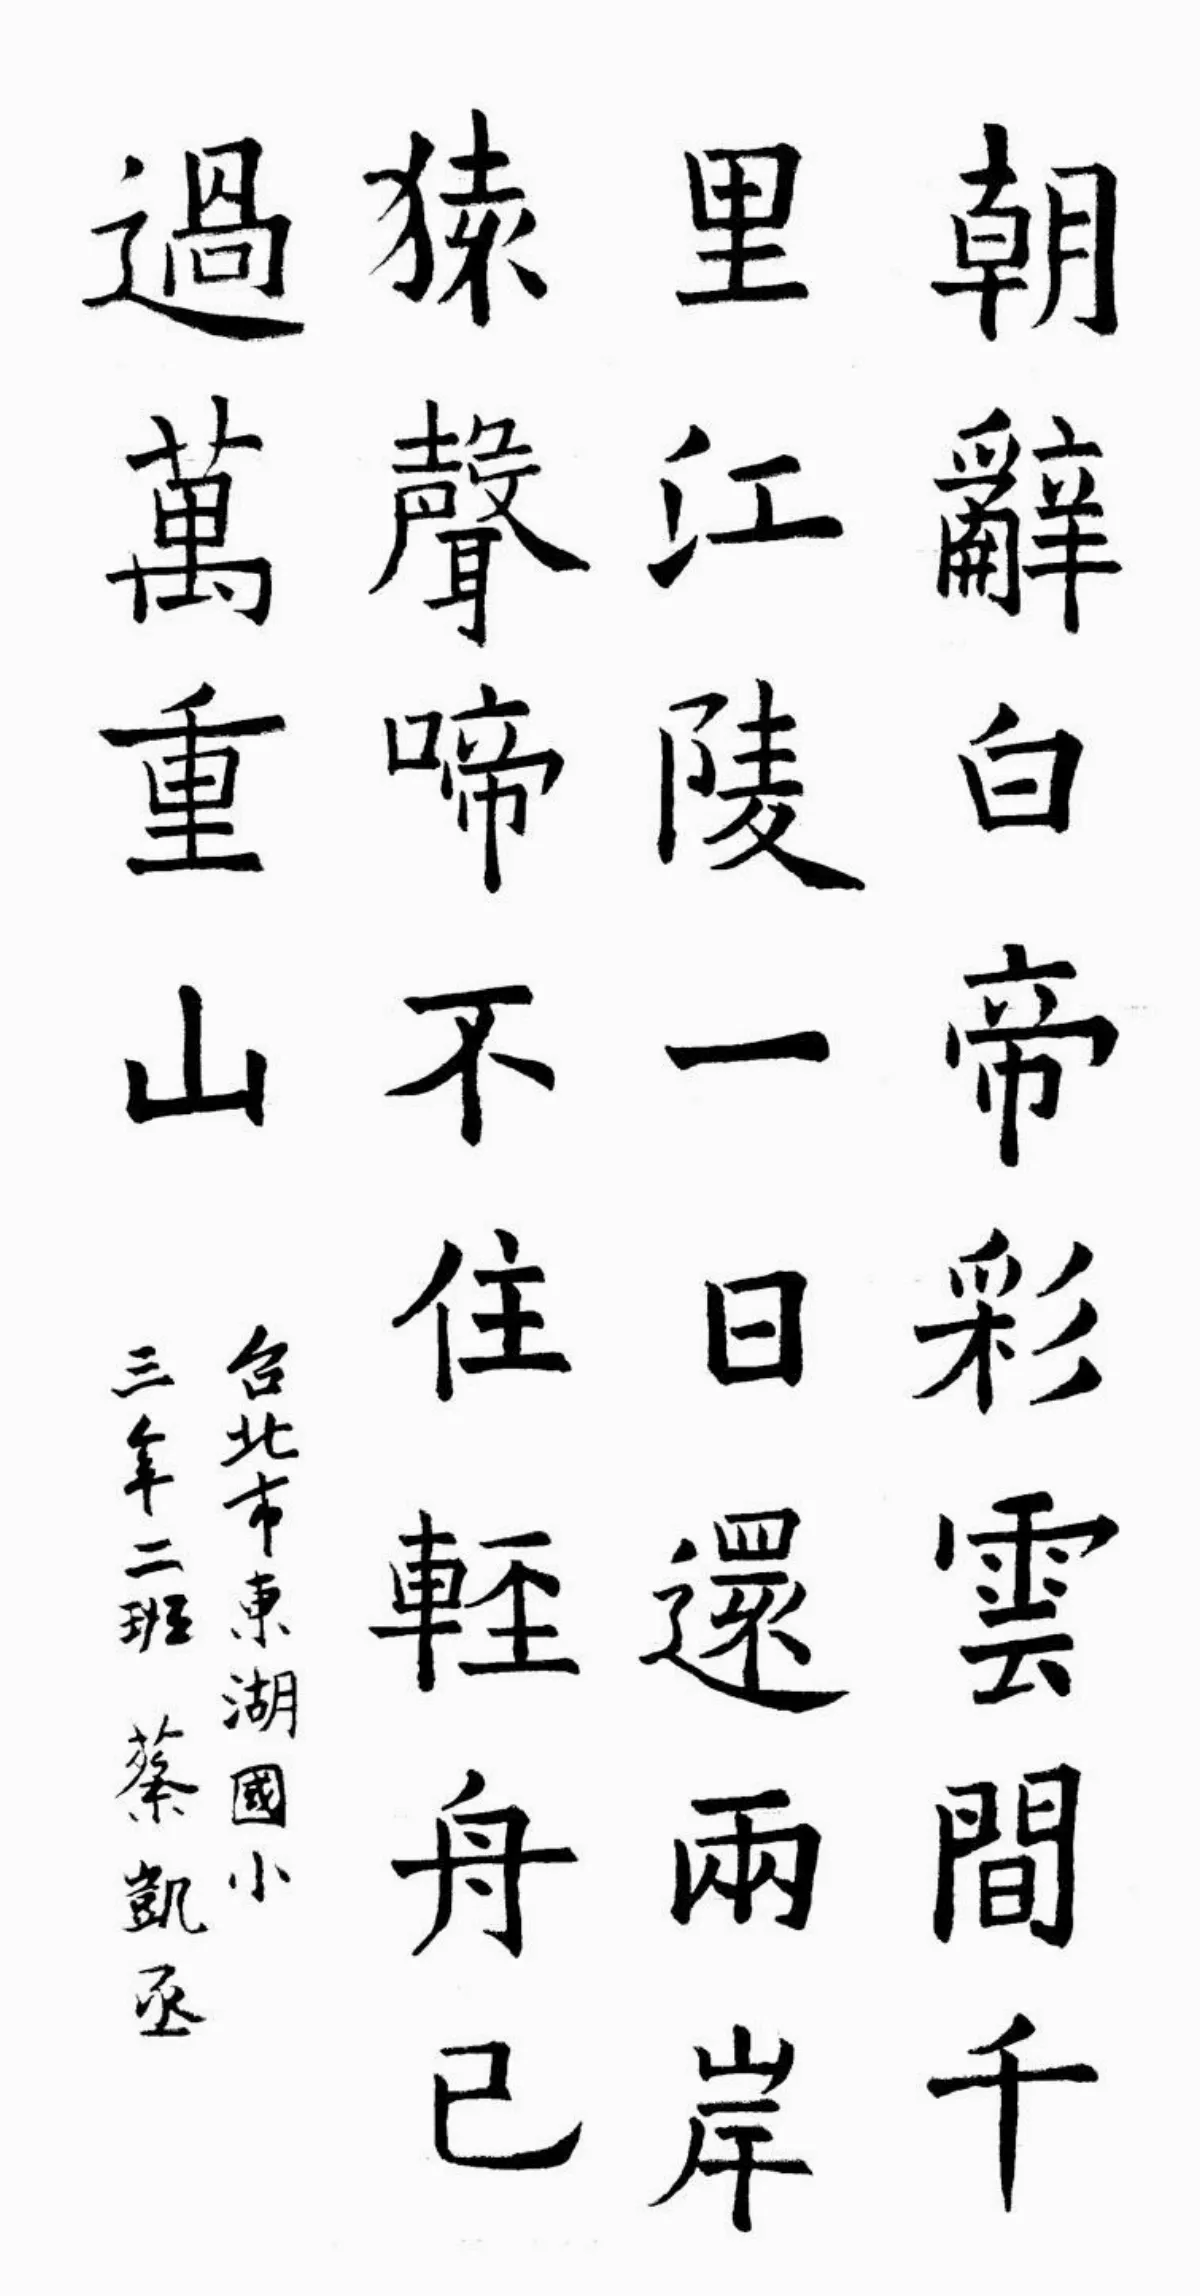 朝辭白帝彩雲間千
里江陵一日還兩岸
猿聲啼不住輕舟已
過萬重山
台北市東湖國小
三年二班 蔡凱丞